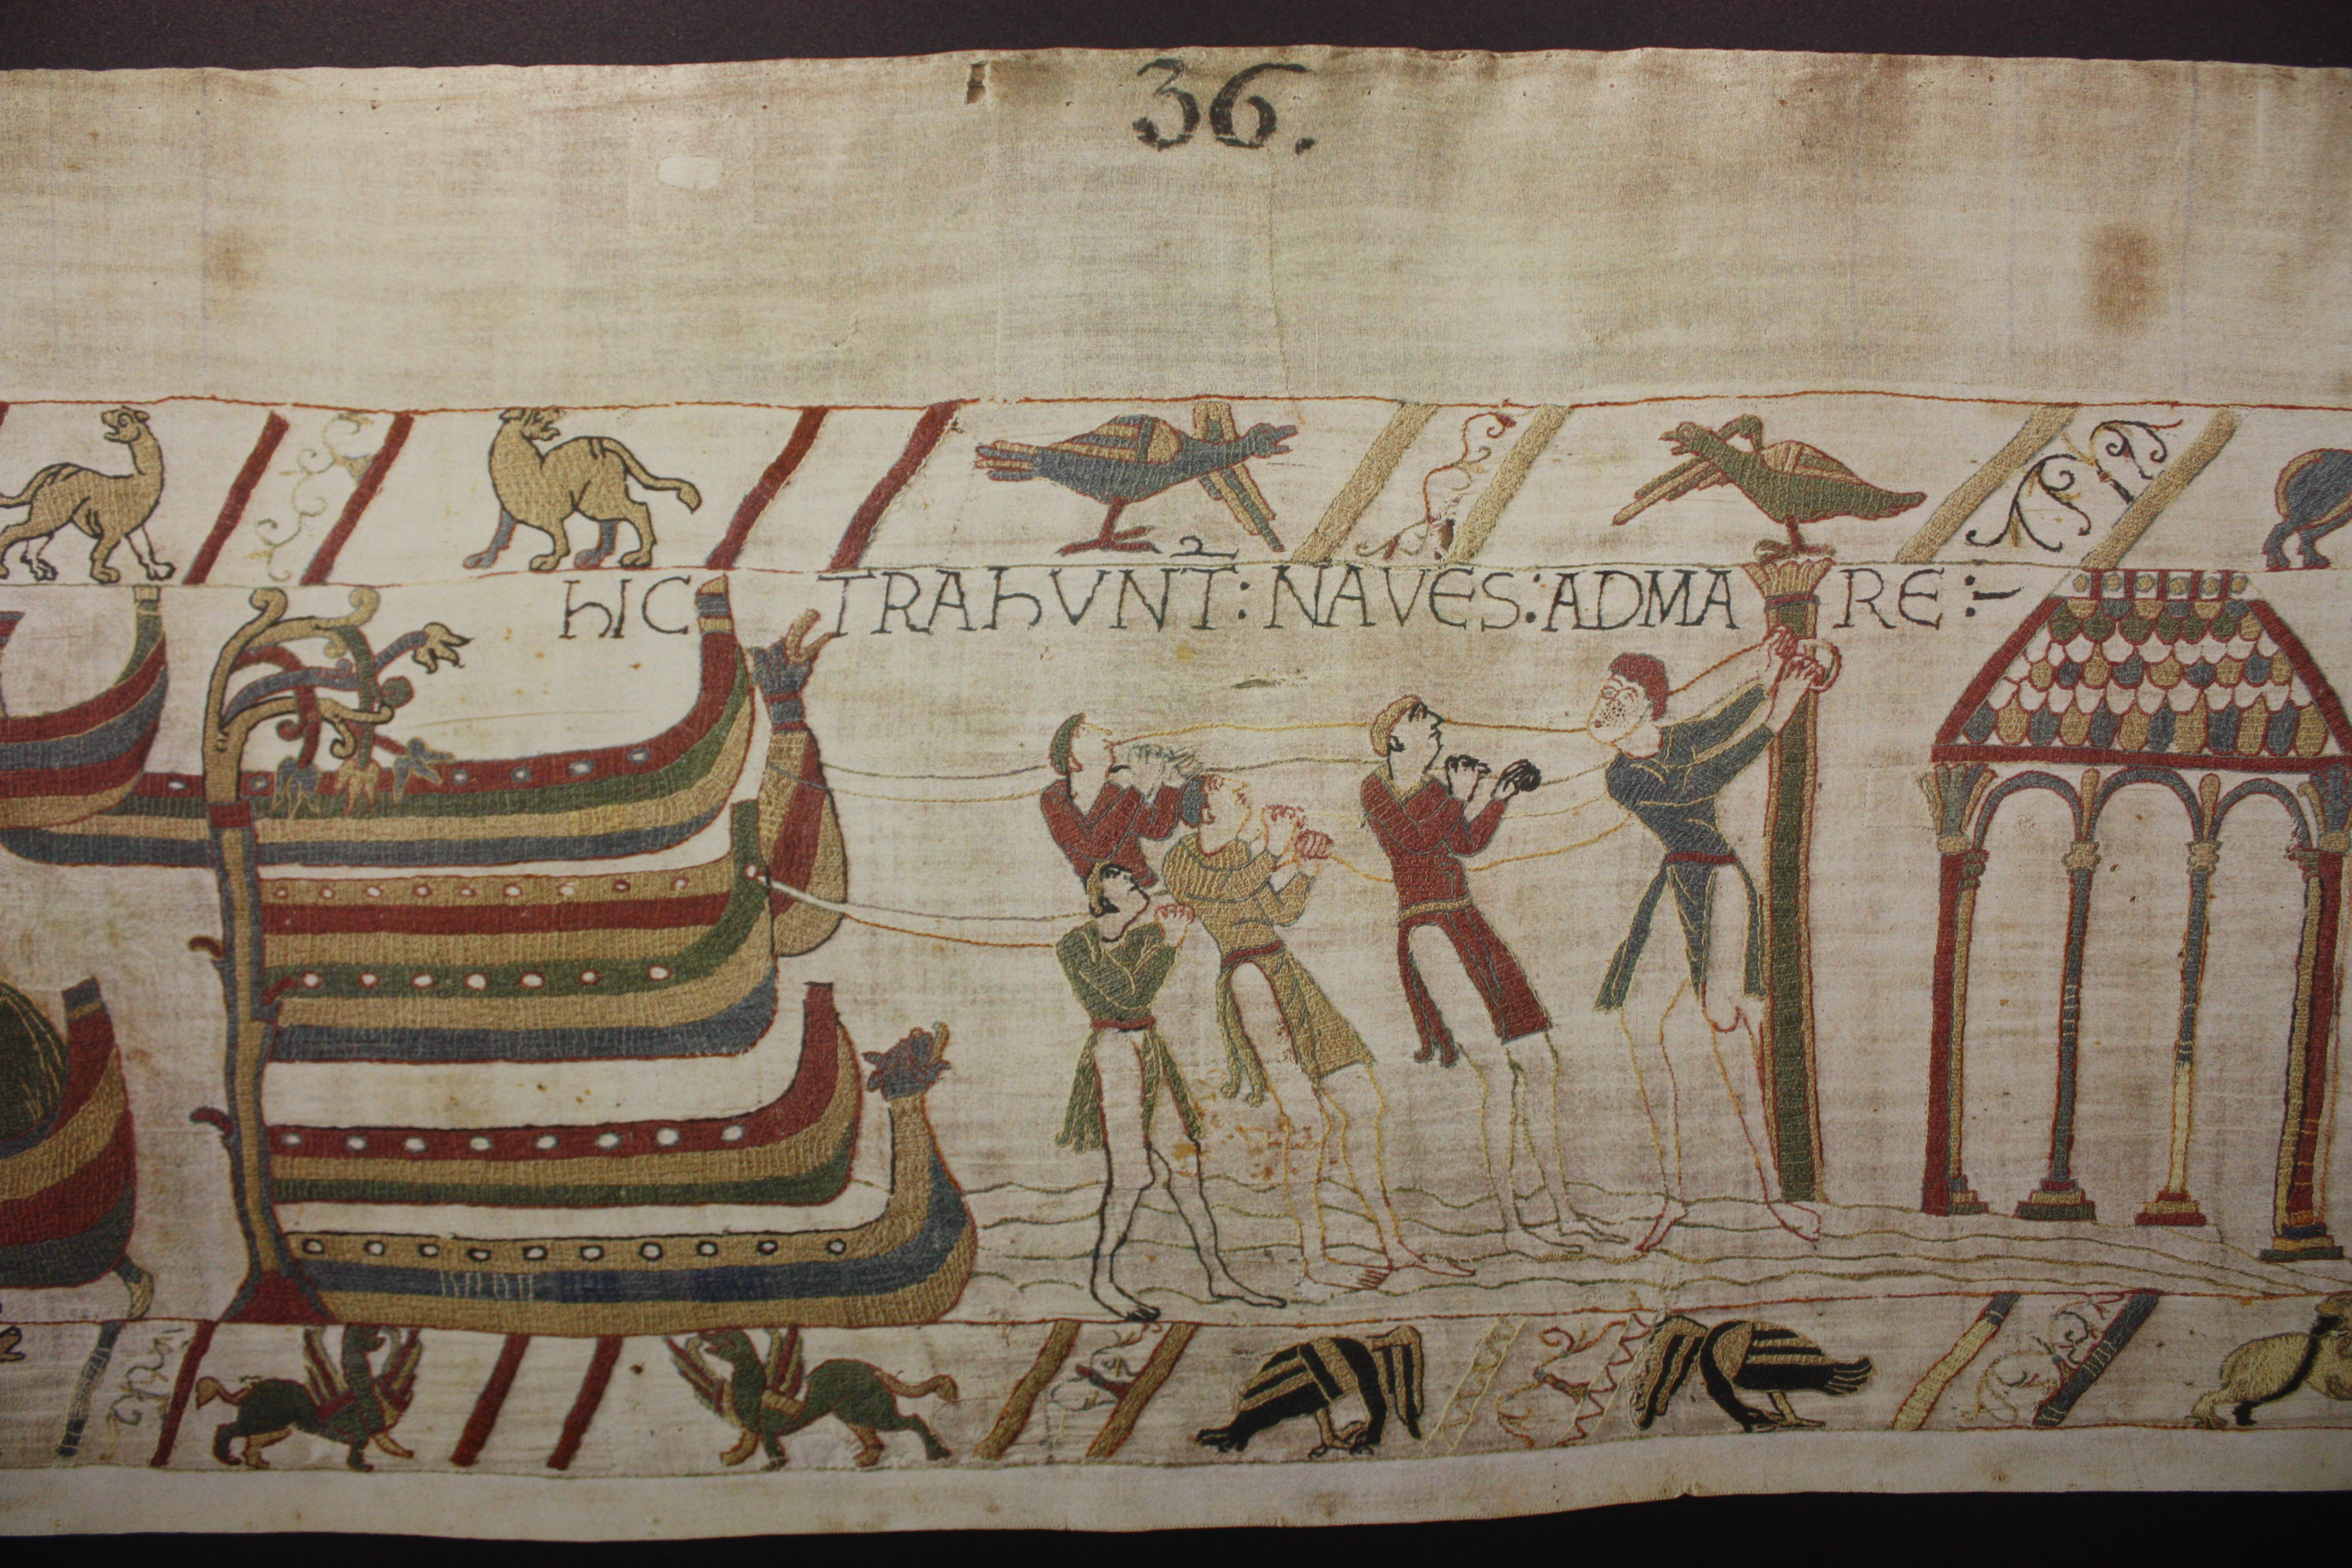 36.
hIC TRAhVNT : NAVES : ADMARE :-